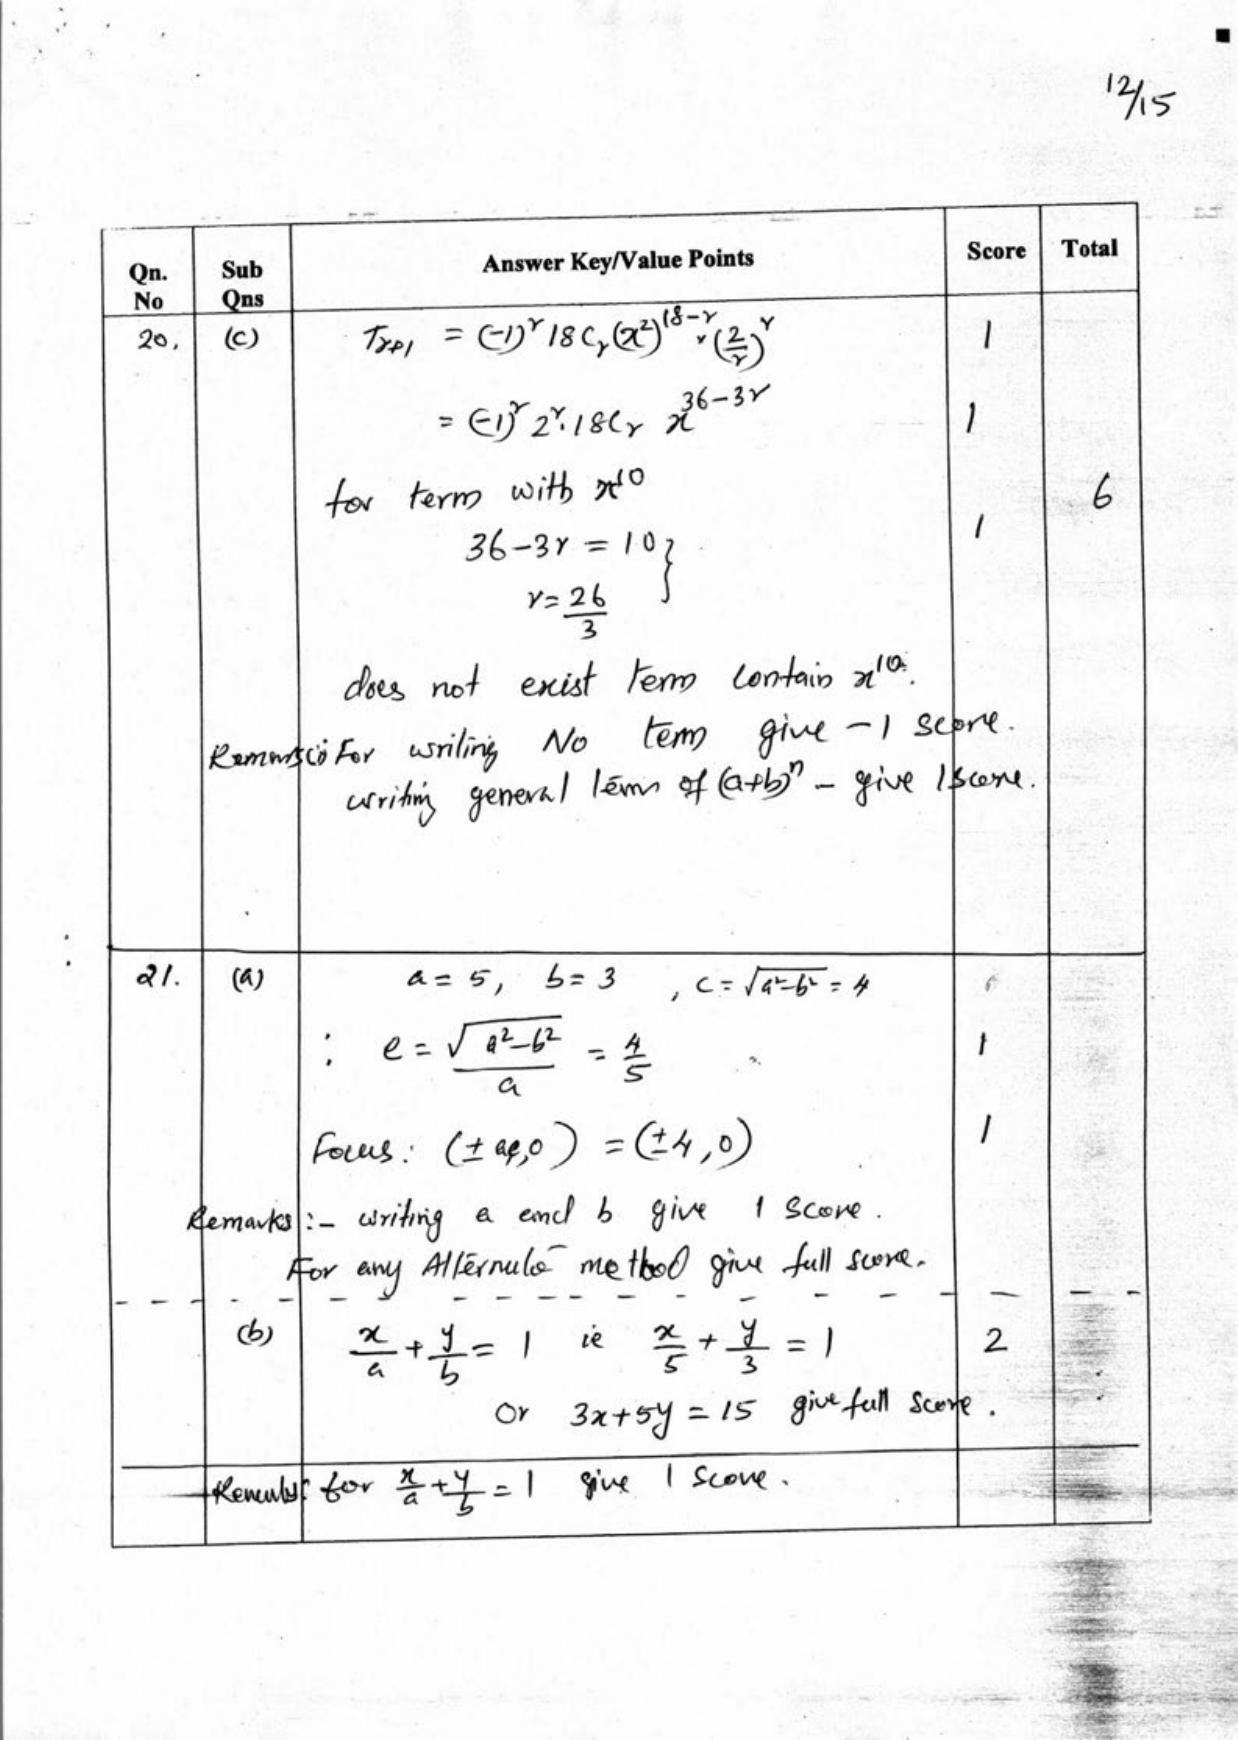 12/15
Qn. No Sub Qns Answer Key/Value Points Score Total
20. (c) Tr+1 = (-1)^r 18Cr (x²)^(18-r) × (2/r)^r 1
= (-1)^r 2^r. 18Cr x^(36-3r) 1
for term with x^10
6
36-3r = 10 } 1
r = 26/3
does not exist term contain x^10.
Remarks (i) For writing No term give - 1 score.
writing general term of (a+b)^n - give 1 score.
21. (a) a = 5, b = 3 , c = √(a²-b²) = 4
: e = √(a²-b²)/a = 4/5 1
Focus: (± ae,0) = (±4,0) 1
Remarks :- writing a and b give 1 score.
For any Alternate method give full score.
(b) x/a + y/b = 1 ie x/5 + y/3 = 1 2
Or 3x+5y = 15 give full score.
for x/a + y/b = 1 give 1 score.